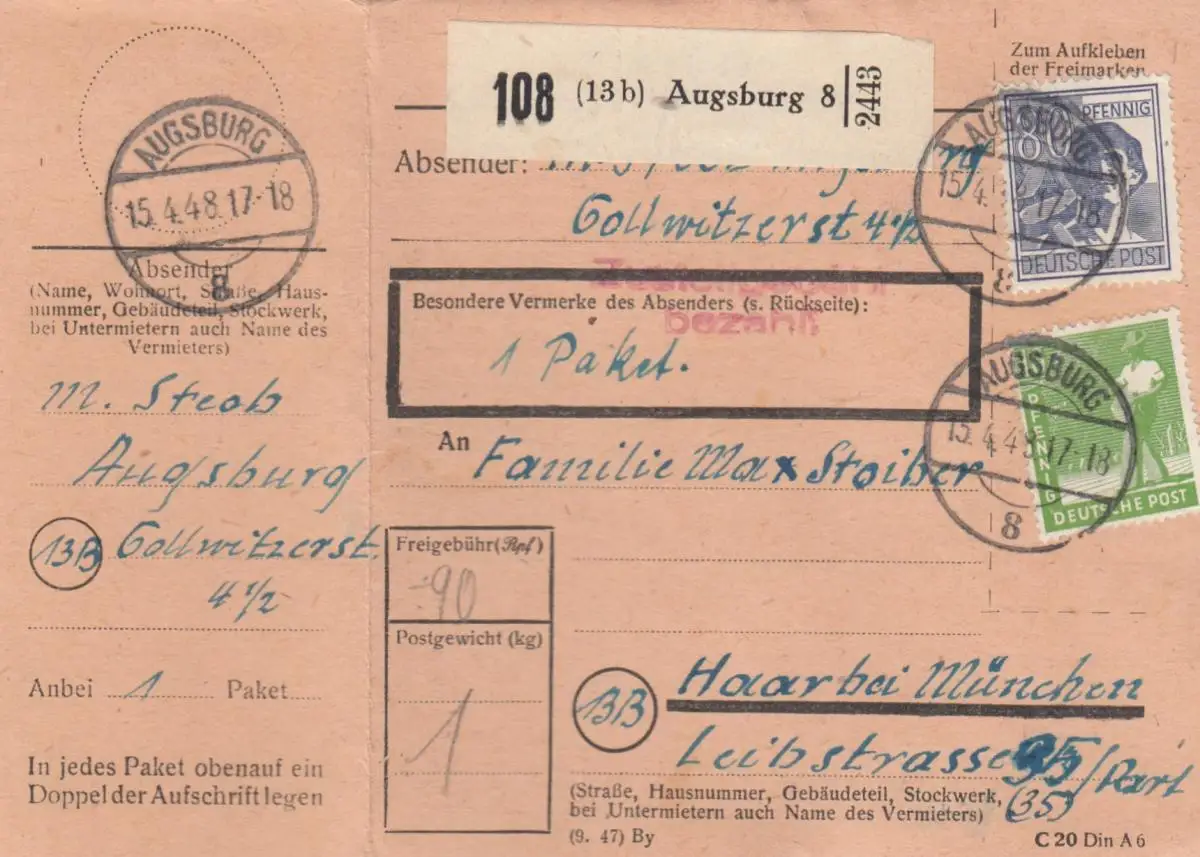 AUGSBURG
15.4.48.17-18
8
Absender
(Name, Wohnort, Straße, Haus-
nummer, Gebäudeteil, Stockwerk,
bei Untermietern auch Name des
Vermieters)
M. Steob
Augsburg
13B Gollwitzerst.
4 1/2
Anbei 1 Paket
In jedes Paket obenauf ein
Doppel der Aufschrift legen
108 (13b) Augsburg 8 2443
Absender:
Gollwitzerst 4 1/2
Zustellgebühr
bezahlt
Besondere Vermerke des Absenders (s. Rückseite):
1 Paket.
An Familie Max Stoiber
Freigebühr (Rpf)
-90
Postgewicht (kg)
1
13B Haar bei München
Leibstrasse 35/Part
(35)
(Straße, Hausnummer, Gebäudeteil, Stockwerk,
bei Untermietern auch Name des Vermieters)
(9. 47) By
C 20 Din A 6
Zum Aufkleben
der Freimarken
80 PFENNIG
DEUTSCHE POST
AUGSBURG
15.4.48.17-18
PFENNIG
DEUTSCHE POST
AUGSBURG
15.4.48.17-18
8